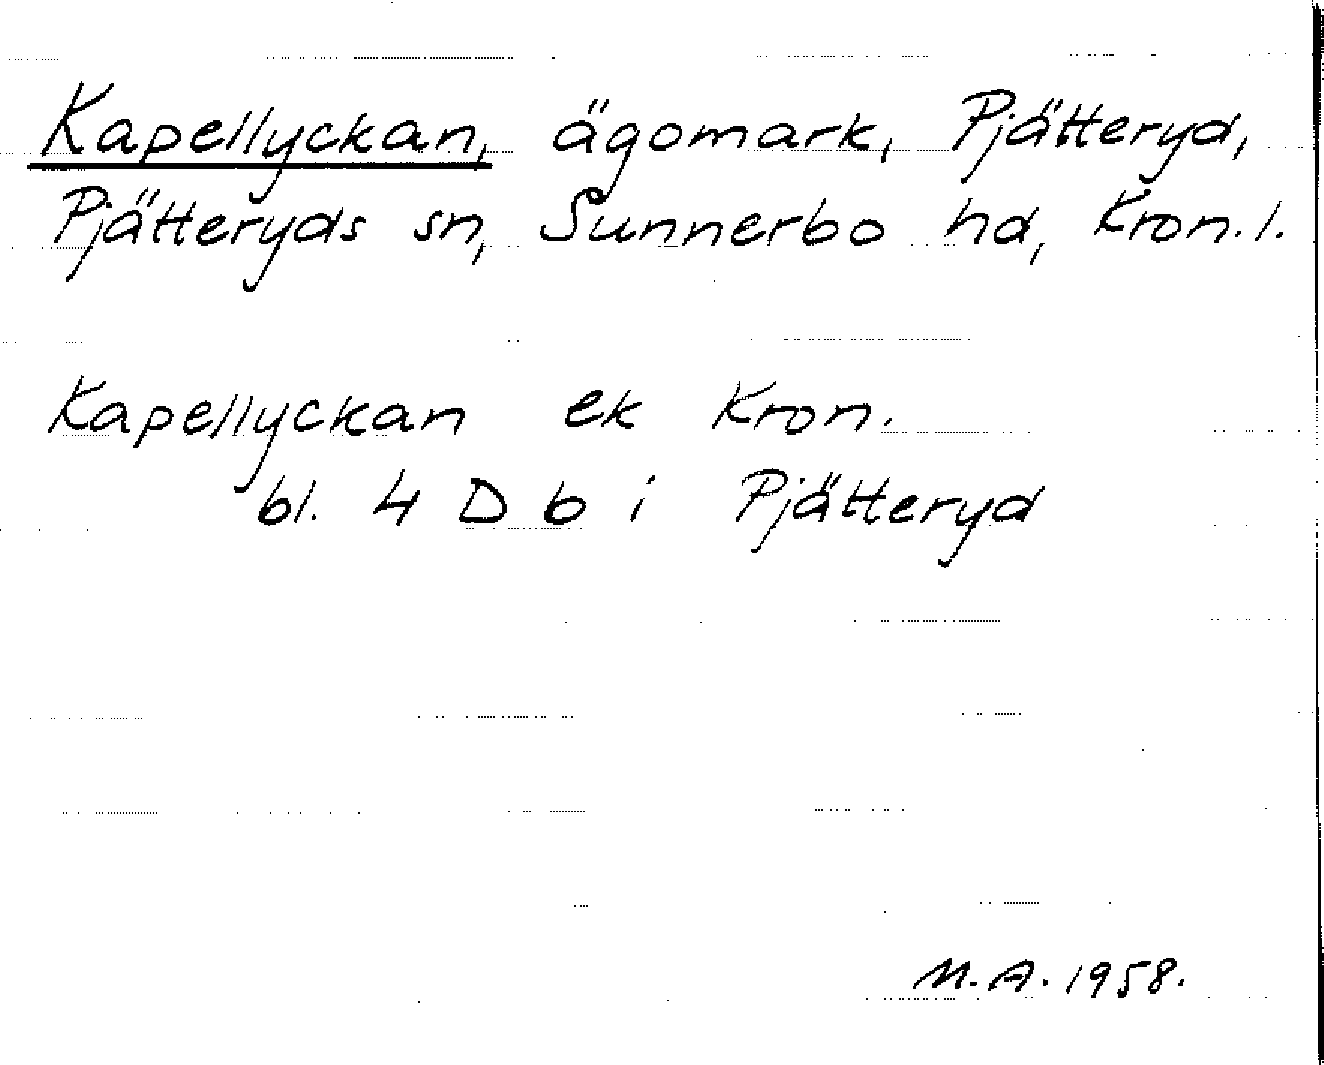 Kapellyckan, ägomark, Pjätteryd,
Pjätteryds sn, Sunnerbo hd, Kron. l.
Kapellyckan ek Kron.
bl. 4 D b i Pjätteryd
M.A. 1958.